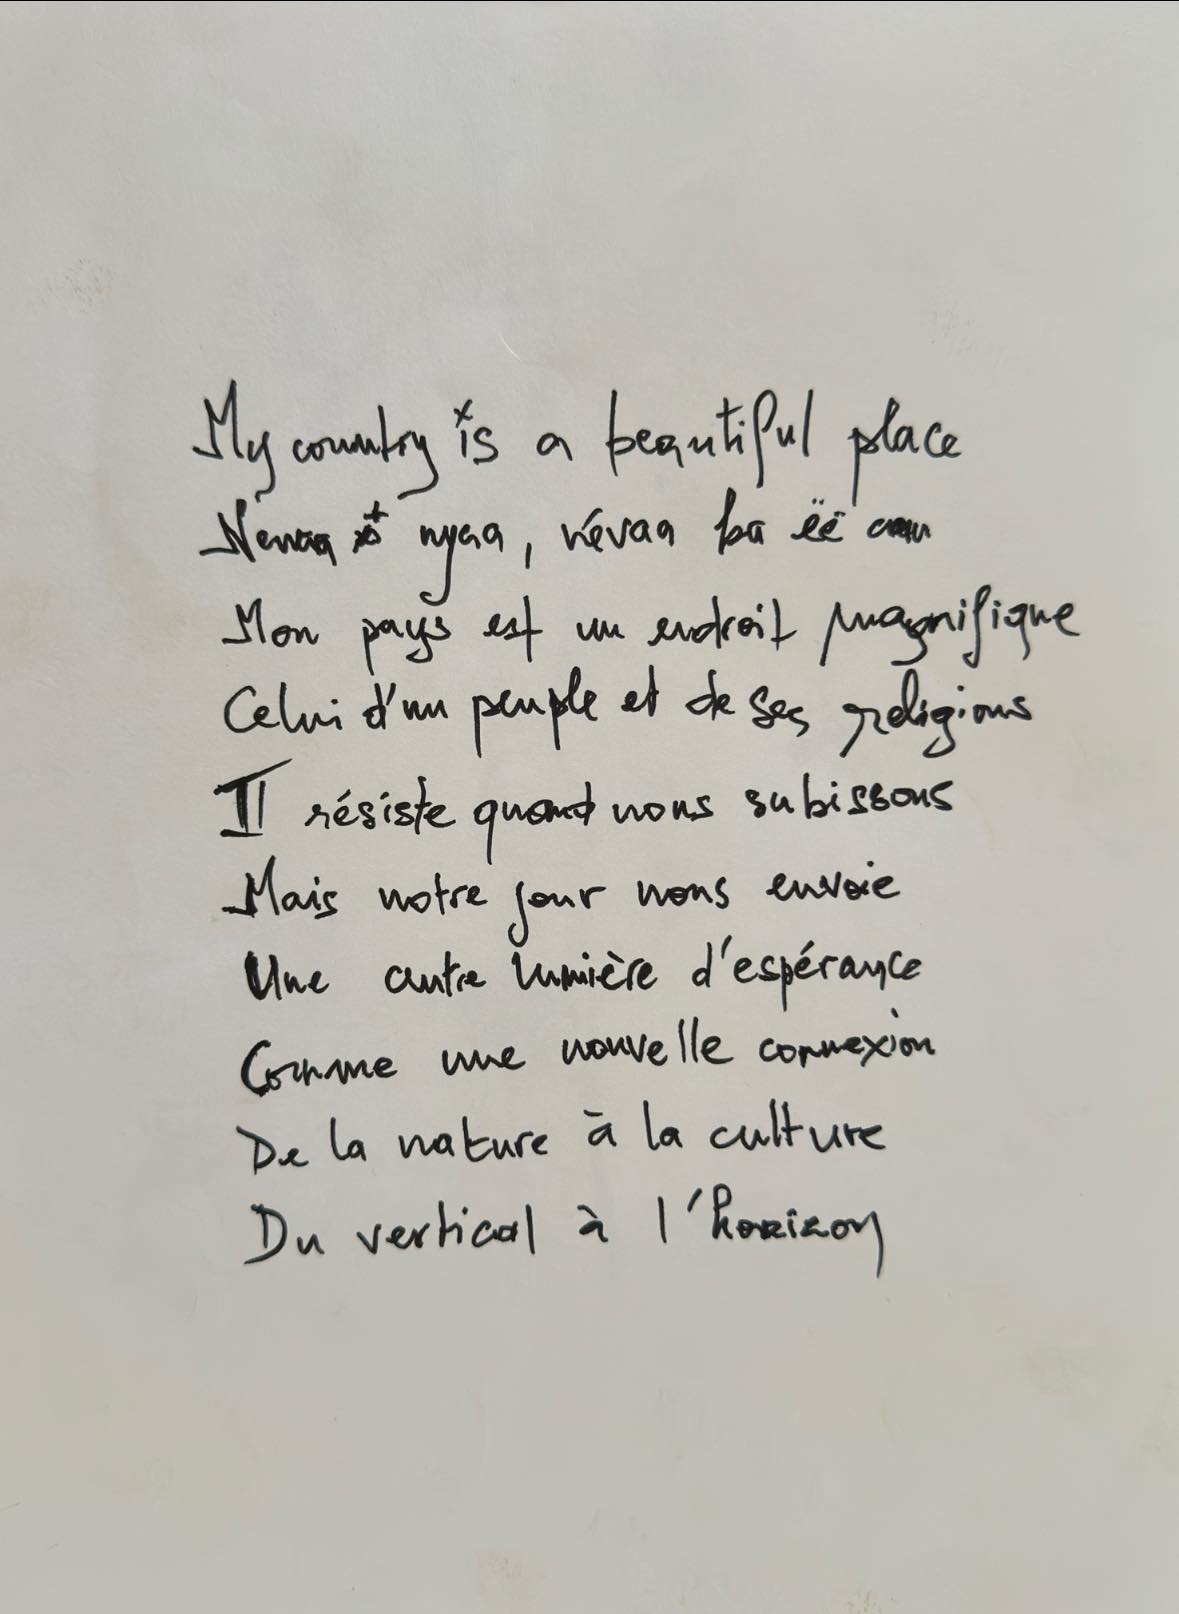 My country is a beautiful place
nyaa, névaa ba ëë
Mon pays est un endroit magnifique
Celui d'un peuple et de ses religions
Il résiste quand nous subissons
Mais notre jour nous envoie
Une autre lumière d'espérance
Comme une nouvelle connexion
De la nature à la culture
Du vertical à l'horizon